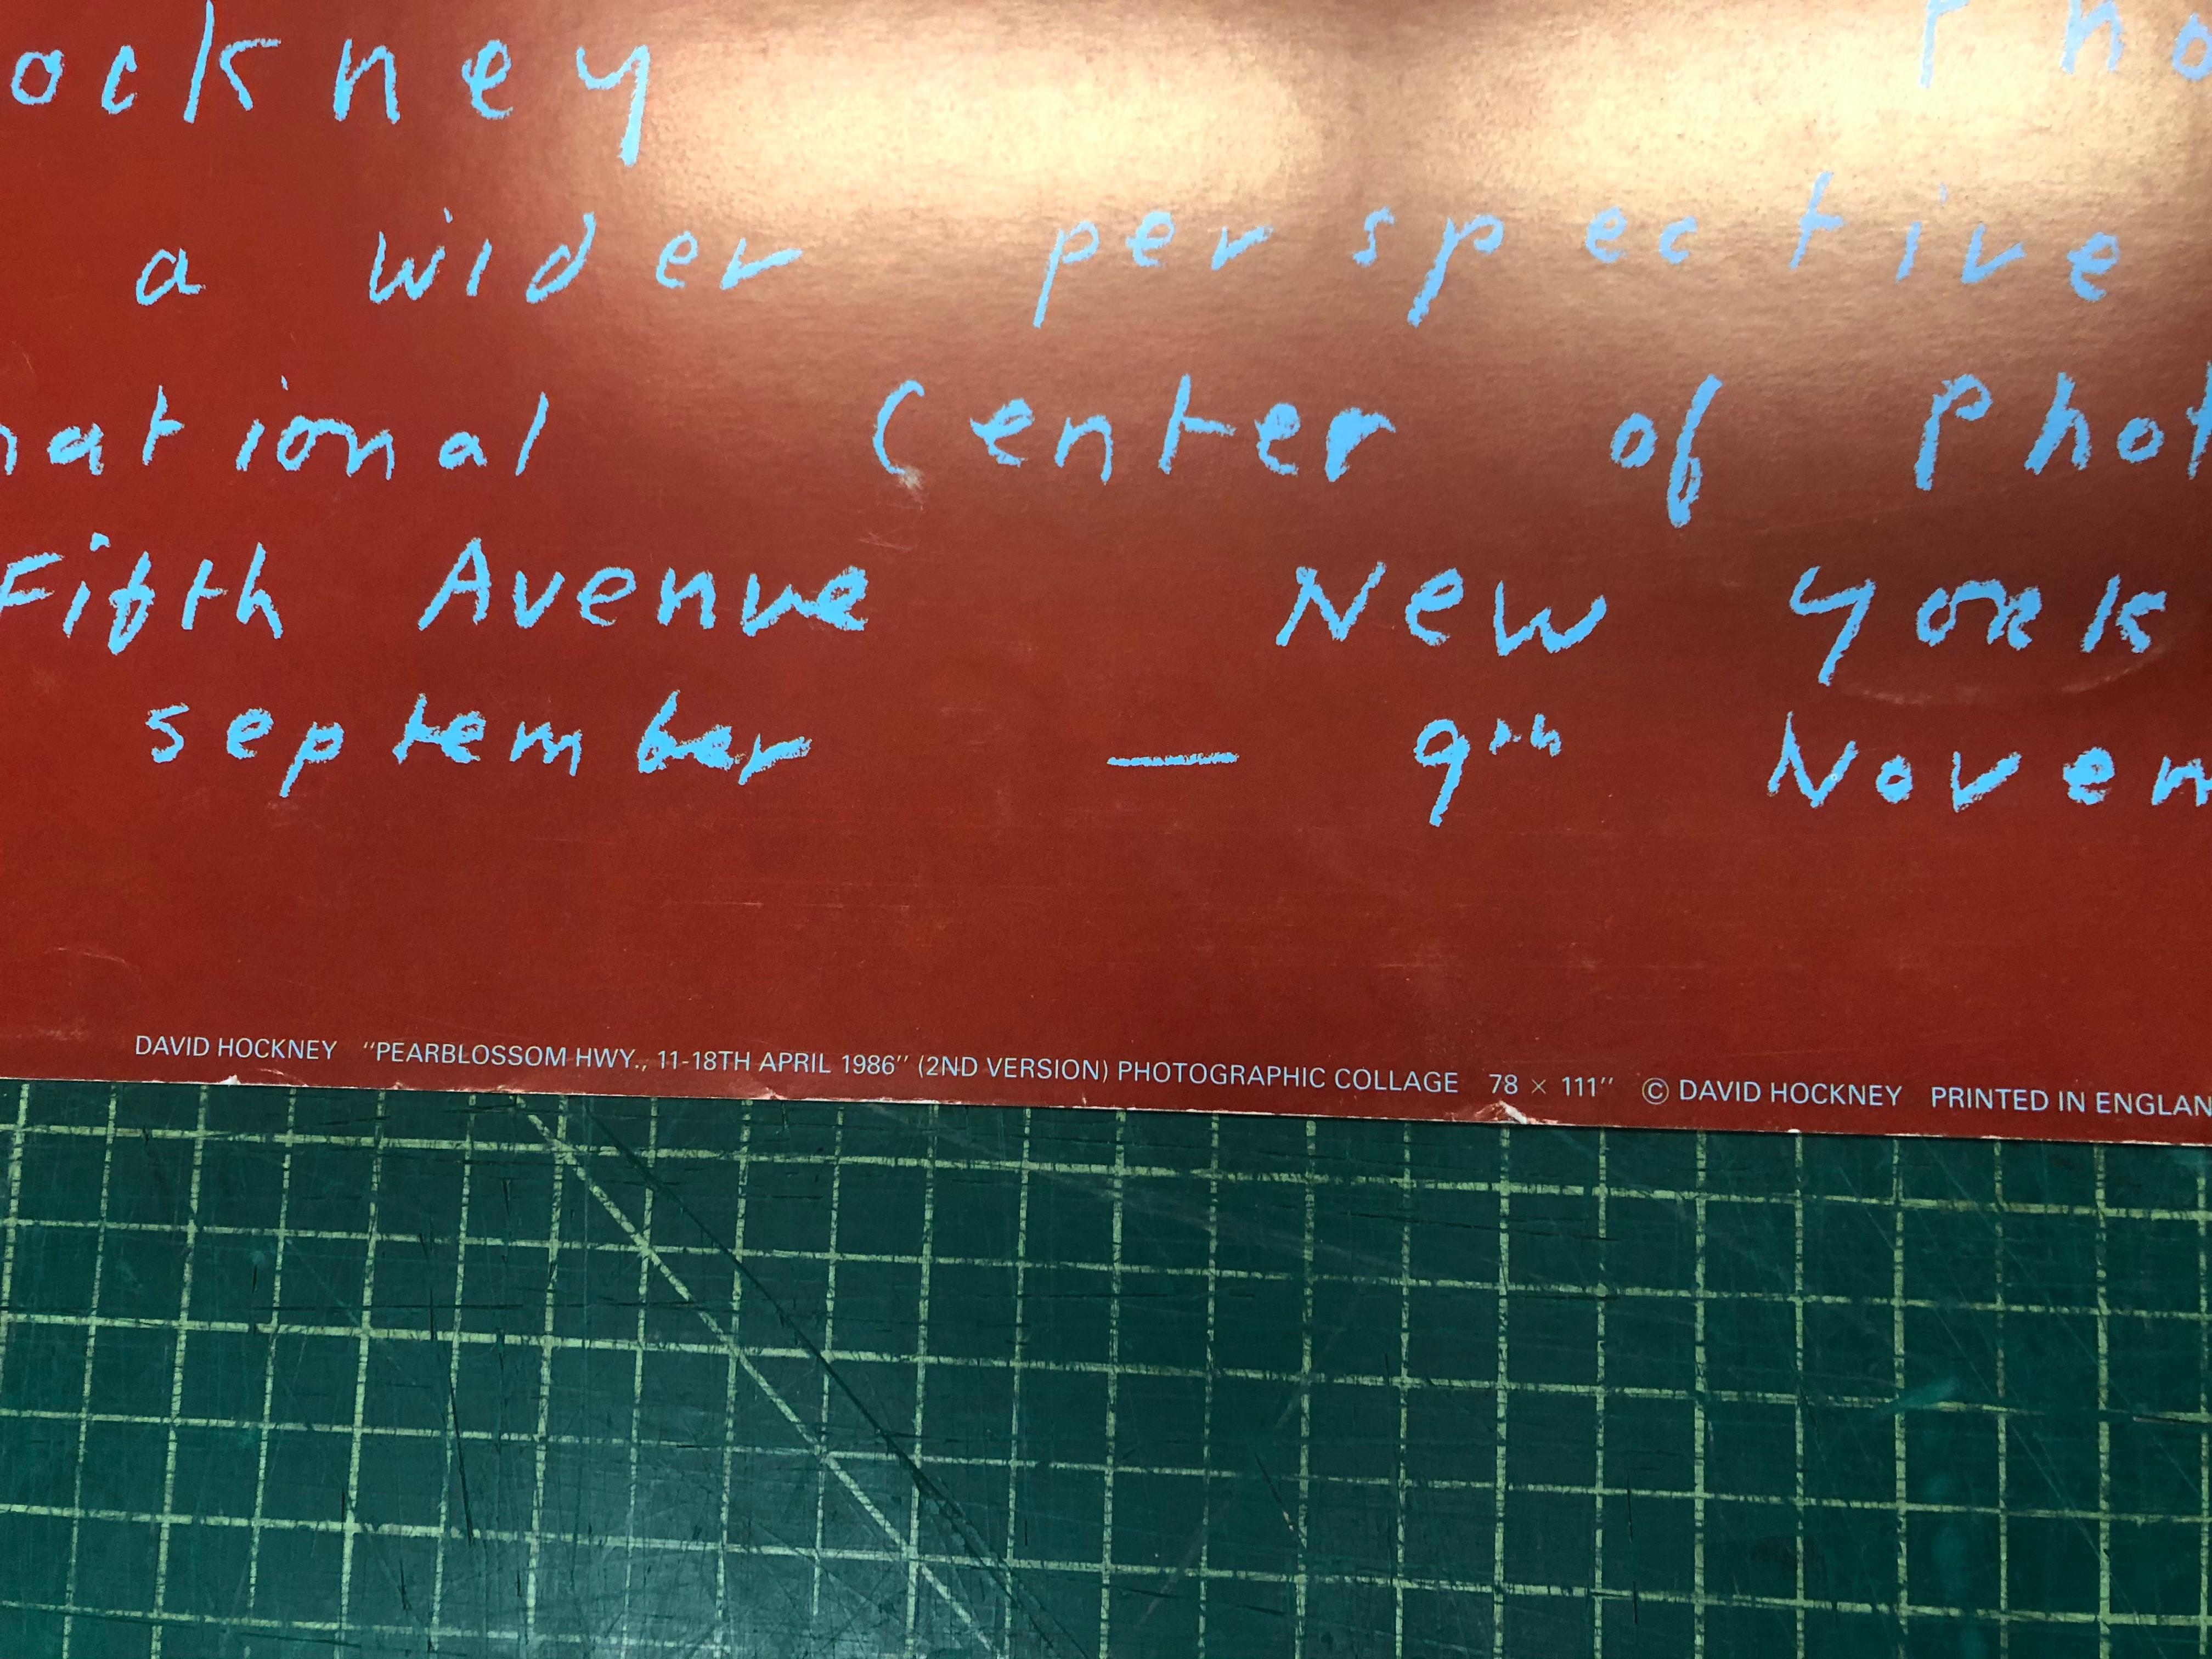 ockney Pho
a wider perspective
national Center of Phot
Fifth Avenue New York
september — 9th Novem
DAVID HOCKNEY "PEARBLOSSOM HWY., 11-18TH APRIL 1986" (2ND VERSION) PHOTOGRAPHIC COLLAGE 78 × 111" © DAVID HOCKNEY PRINTED IN ENGLAN